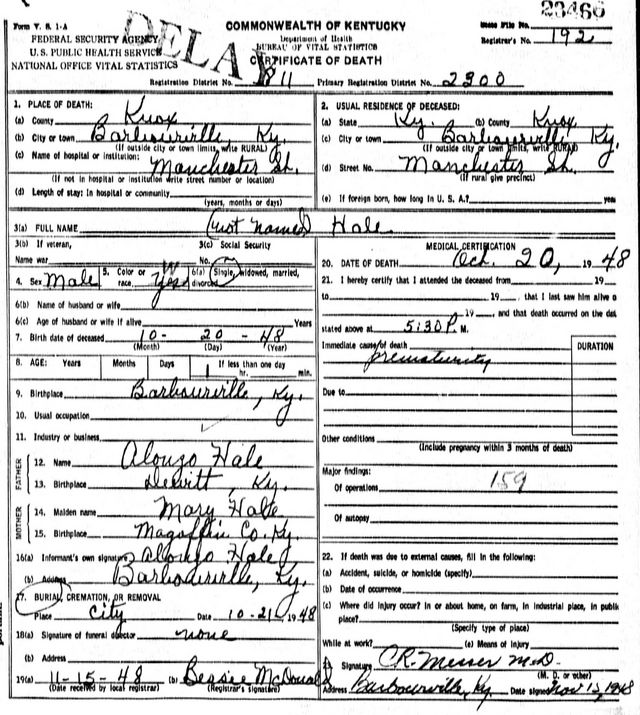 Form V. S. 1-A
FEDERAL SECURITY AGENCY
U. S. PUBLIC HEALTH SERVICE
NATIONAL OFFICE VITAL STATISTICS
DELAY
COMMONWEALTH OF KENTUCKY
Department of Health
BUREAU OF VITAL STATISTICS
CERTIFICATE OF DEATH
State File No. 23466
Registrar's No. 192
Registration District No. 811 Primary Registration District No. 2300
1. PLACE OF DEATH:
(a) County Knox
(b) City or town Barbourville Ky.
(If outside city or town limits, write RURAL)
(c) Name of hospital or institution: Manchester St.
(If not in hospital or institution write street number or location)
(d) Length of stay: In hospital or community
(years, months or days)
2. USUAL RESIDENCE OF DECEASED:
(a) State Ky. (b) County Knox
(c) City or town Barbourville Ky.
(If outside city or town limits, write RURAL)
(d) Street No. Manchester St.
(If rural give precinct)
(e) If foreign born, how long in U. S. A.? years
3(a) FULL NAME (not named) Hale
3(b) If veteran, Name war 3(c) Social Security No.
4. Sex Male 5. Color or race W yes 6(a) Single, widowed, married, divorced
6(b) Name of husband or wife
6(c) Age of husband or wife if alive Years
7. Birth date of deceased 10- 20 -48
(Month) (Day) (Year)
8. AGE: Years Months Days If less than one day
1 hr. min.
9. Birthplace Barbourville, Ky.
10. Usual occupation
11. Industry or business
FATHER
12. Name Alonzo Hale
13. Birthplace Dewitt, Ky.
MOTHER
14. Maiden name Mary Hale
15. Birthplace Magoffin Co. Ky.
16(a) Informant's own signature Alonzo Hale
(b) Address Barbourville, Ky.
17. BURIAL, CREMATION, OR REMOVAL
Place City Date 10-21, 1948
18(a) Signature of funeral director none
(b) Address
19(a) 11-15-48 (b) Bessie McDonald
(Date received by local registrar) (Registrar's signature)
MEDICAL CERTIFICATION
20. DATE OF DEATH Oct. 20, 1948
21. I hereby certify that I attended the deceased from 19
to 19 , that I last saw him alive o
19 , and that death occurred on the dat
stated above at 5:30 P. M.
Immediate cause of death DURATION
prematurity
Due to
Other conditions
(Include pregnancy within 3 months of death)
Major findings:
Of operations 159
Of autopsy
22. If death was due to external causes, fill in the following:
(a) Accident, suicide, or homicide (specify)
(b) Date of occurrence
(c) Where did injury occur? In or about home, on farm, in industrial place, in public
place?
(Specify type of place)
While at work? (e) Means of injury
Signature C.R. Messer M.D.
(M. D. or other)
Address Barbourville, Ky Date signed Nov 15, 1948